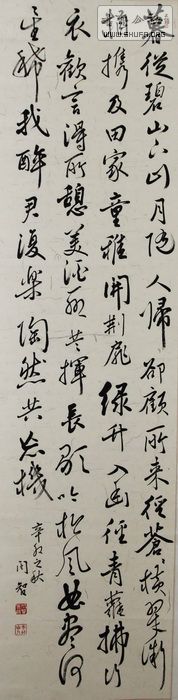 暮從碧山下山月随人歸卻顧所来徑蒼々横翠微
相攜及田家童稚開荊扉綠竹入幽徑青蘿拂行
衣歡言得所憩美酒聊共揮長歌吟松風曲盡河
星稀我醉君復樂陶然共忘機
辛卯之秋
WWW.SHUFA.ORG